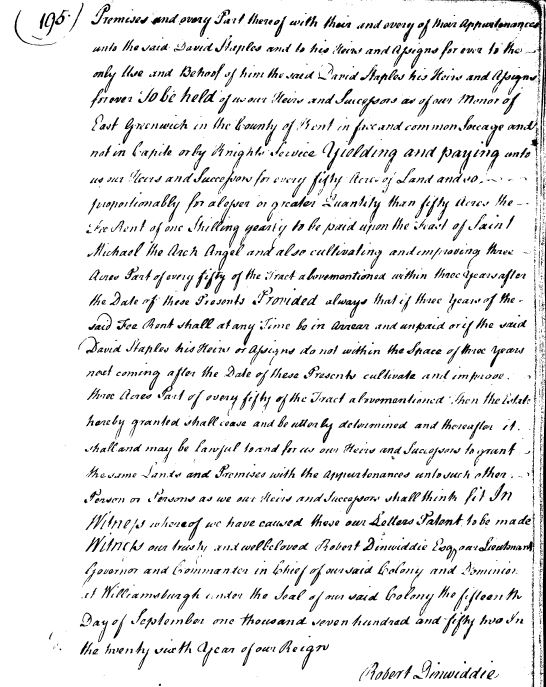 (195)
Premises and every Part thereof with their and every of their Appurtenances
unto the said David Staples and to his Heirs and Assigns for ever to the
only Use and Behoof of him the said David Staples his Heirs and Assigns
forever To be held of us our Heirs and Successors as of our Manor of
East Greenwich in the County of Kent in free and common Soccage and
not in Capite or by Knights Service Yielding and paying unto
us our Heirs and Successors for every fifty Acres of Land and so
proportionably for a lesser or greater Quantity than fifty Acres the
Fee Rent of one Shilling yearly to be paid upon the Feast of Saint
Michael the Arch Angel and also cultivating and improving three
Acres Part of every fifty of the Tract abovementioned within three Years after
the Date of these Presents Provided always that if three Years of the
said Fee Rent shall at any Time be in Arrear and unpaid or if the said
David Staples his Heirs or Assigns do not within the Space of three Years
next coming after the Date of these Presents cultivate and improve
three Acres Part of every fifty of the Tract abovementioned then the Estate
hereby granted shall cease and be utterly determined and thereafter it
shall and may be lawful to and for us our Heirs and Successors to grant
the same Lands and Premises with the Appurtenances unto such other
Person or Persons as we our Heirs and Successors shall think fit In
Witness whereof we have caused these our Letters Patent to be made
Witness our trusty and welbeloved Robert Dinwiddie Esqr our Lieutenant
Governor and Commander in Chief of our said Colony and Dominion
at Williamsburgh under the Seal of our said Colony the fifteenth
Day of September one thousand seven hundred and fifty two In
the twenty sixth Year of our Reign
Robert Dinwiddie